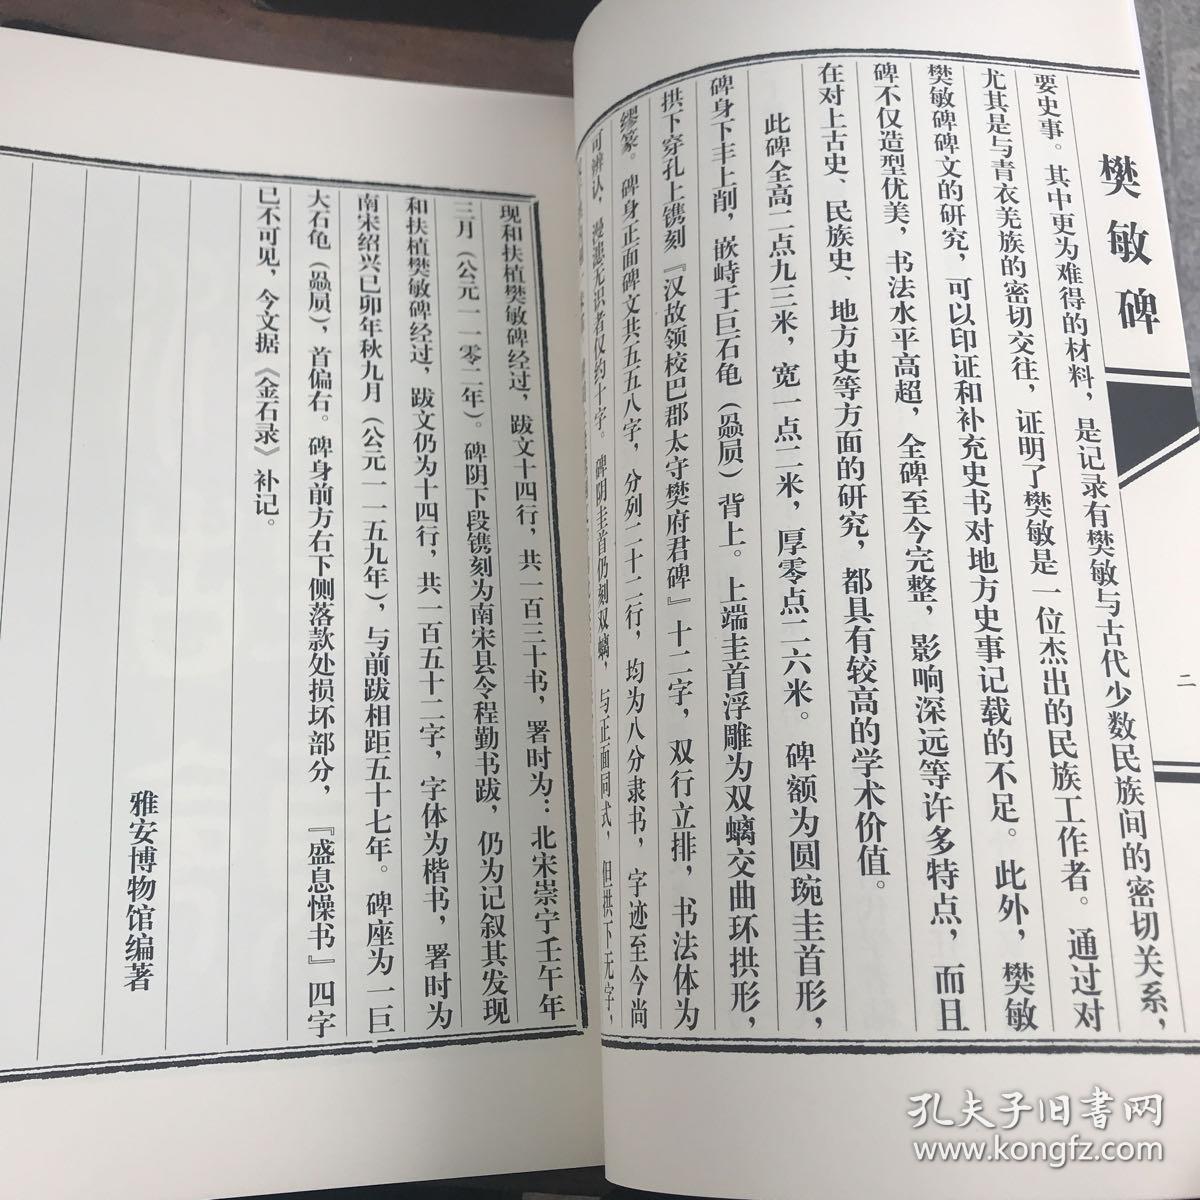 樊敏碑
二
要史事。其中更为难得的材料，是记录有樊敏与古代少数民族间的密切关系，
尤其是与青衣羌族的密切交往，证明了樊敏是一位杰出的民族工作者。通过对
樊敏碑碑文的研究，可以印证和补充史书对地方史事记载的不足。此外，樊敏
碑不仅造型优美，书法水平高超，全碑至今完整，影响深远等许多特点，而且
在对上古史、民族史、地方史等方面的研究，都具有较高的学术价值。
此碑全高二点九三米，宽一点二米，厚零点二六米。碑额为圆琬圭首形，
碑身下丰上削，嵌峙于巨石龟（赑屃）背上。上端圭首浮雕为双螭交曲环拱形，
拱下穿孔上镌刻『汉故领校巴郡太守樊府君碑』十二字，双行立排，书法体为
缪篆。碑身正面碑文共五五八字，分列二十二行，均为八分隶书，字迹至今尚
可辨认，漫漶无识者仅约十字。碑阴圭首仍刻双螭，与正面同式，但拱下无字，
现和扶植樊敏碑经过，跋文十四行，共一百三十书，署时为：北宋崇宁壬午年
三月（公元一一零二年）。碑阴下段镌刻为南宋县令程勤书跋，仍为记叙其发现
和扶植樊敏碑经过，跋文仍为十四行，共一百五十二字，字体为楷书，署时为
南宋绍兴己卯年秋九月（公元一一五九年），与前跋相距五十七年。碑座为一巨
大石龟（赑屃），首偏右。碑身前方右下侧落款处损坏部分，『盛息懆书』四字
已不可见，今文据《金石录》补记。
雅安博物馆编著
孔夫子旧书网
www.kongfz.com